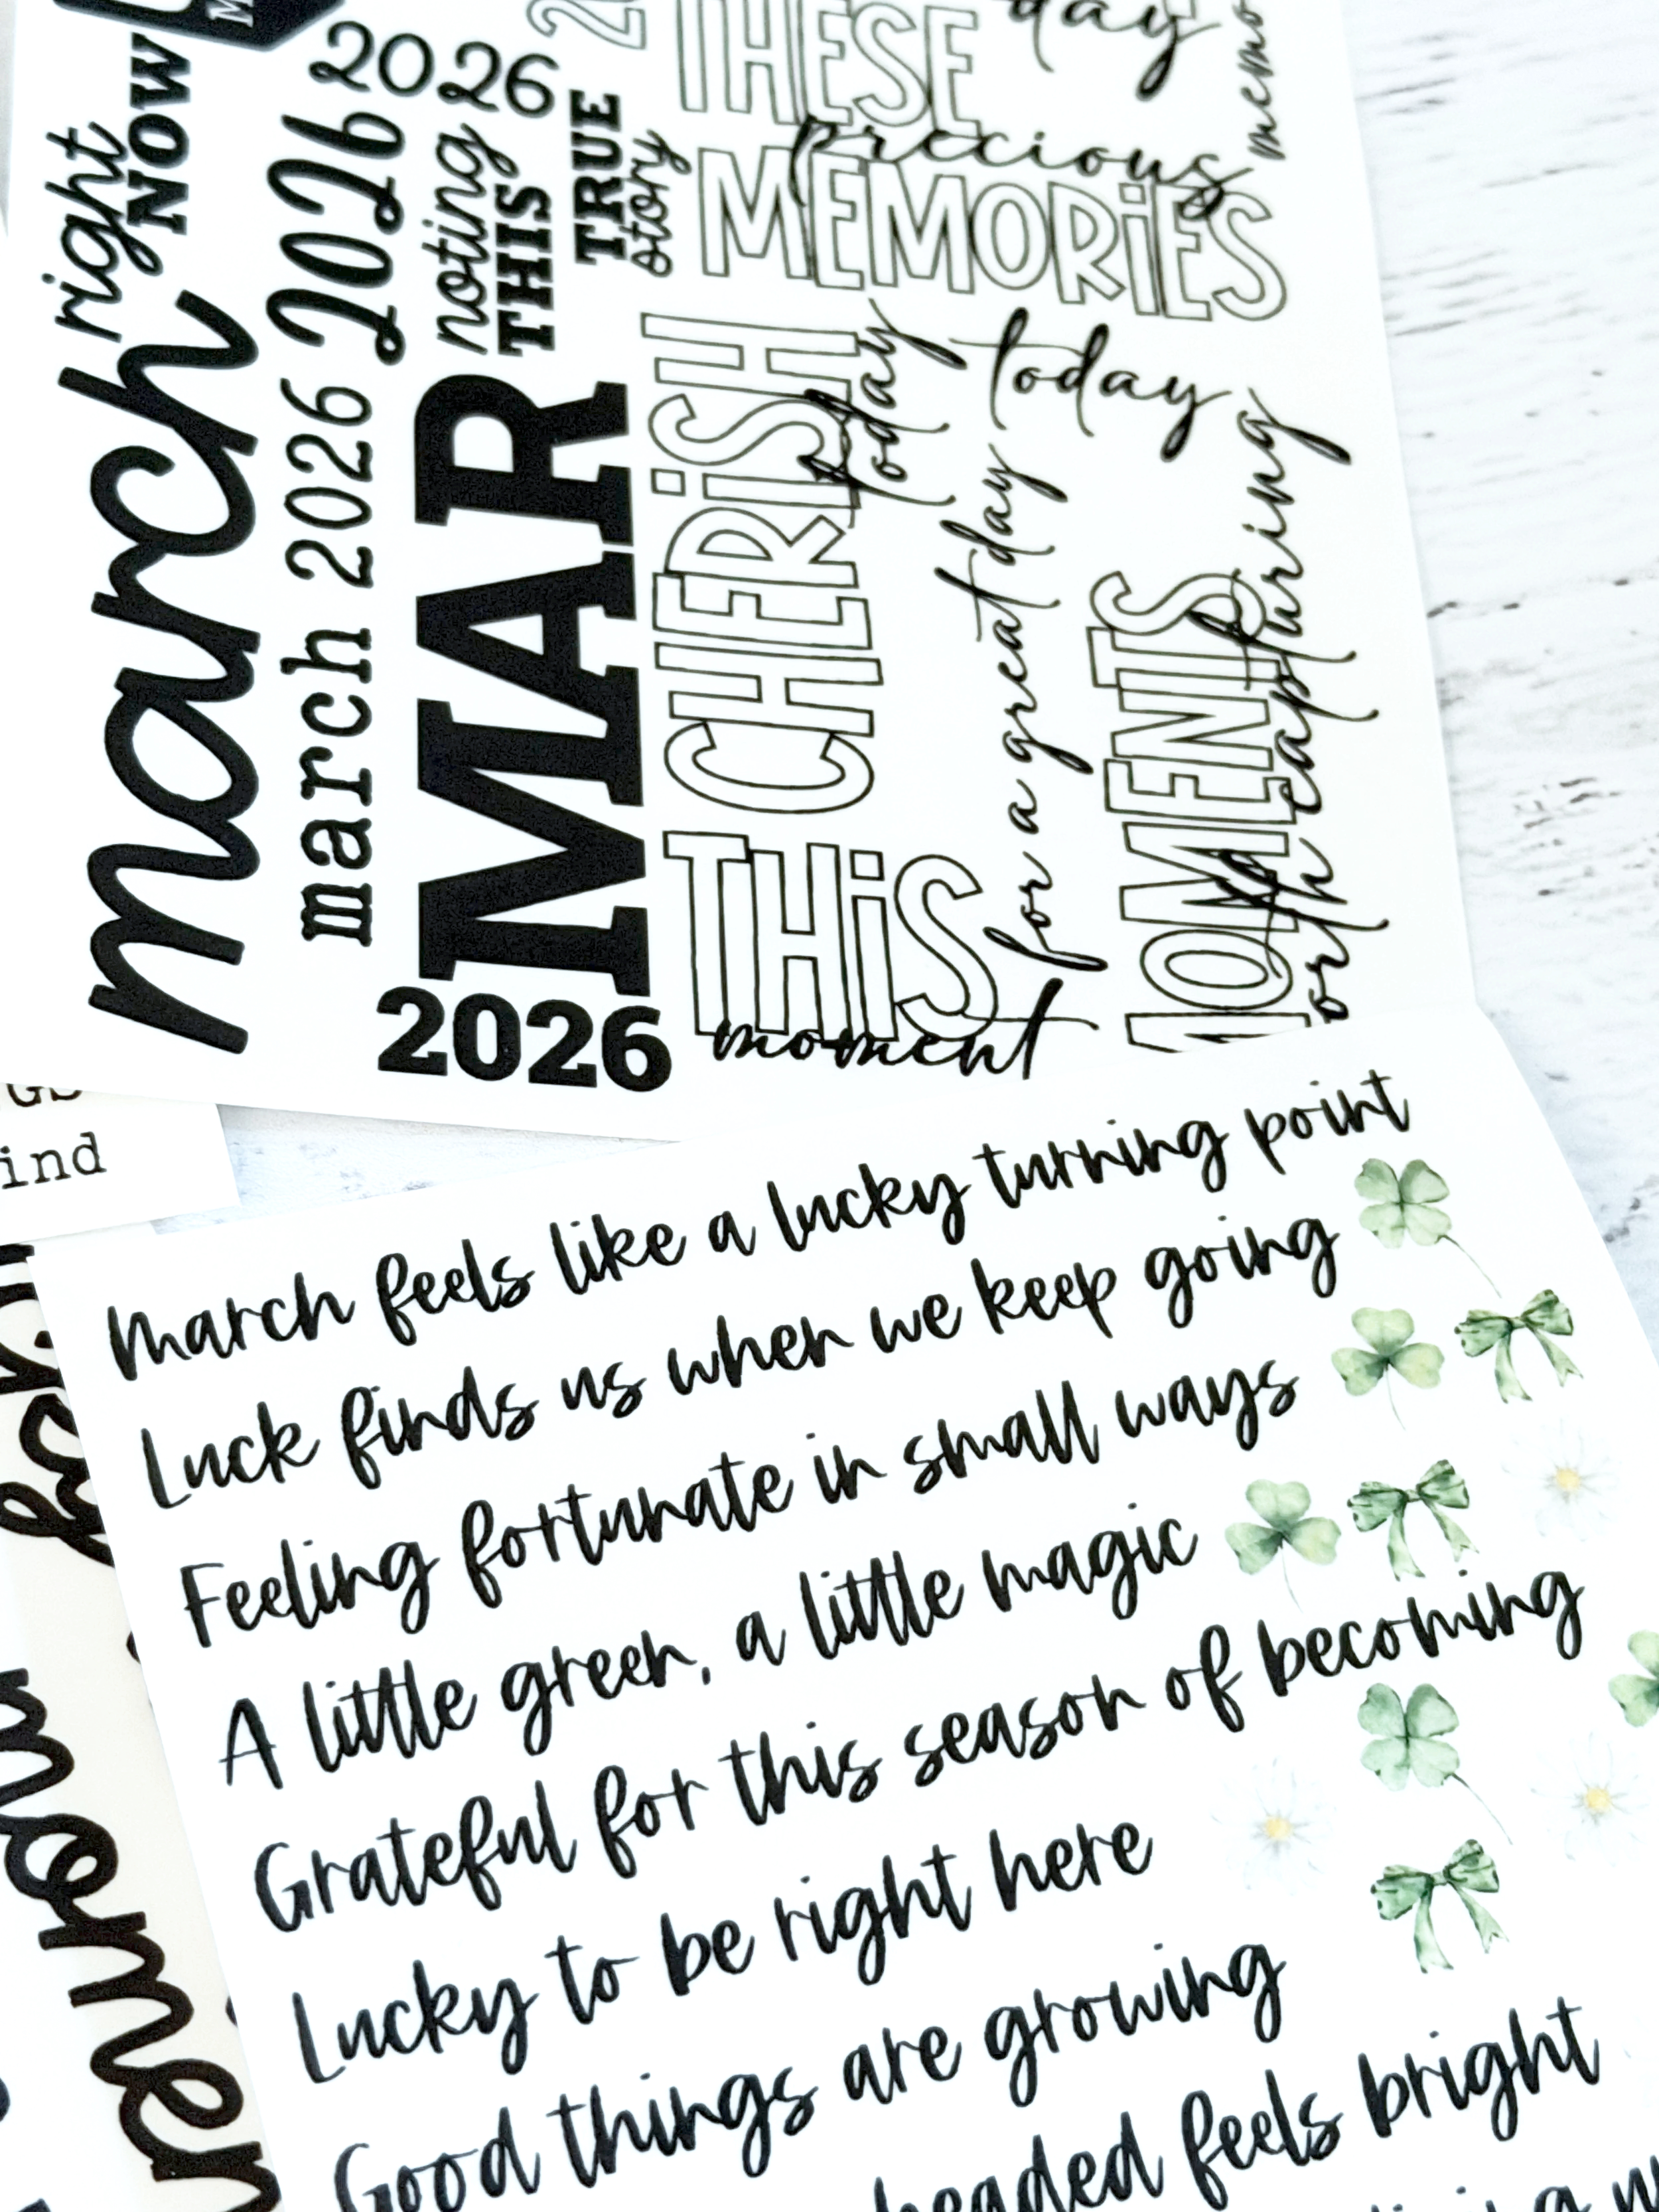 right
NOW
march
2026
2026
march 2026
noting
THIS
TRUE
story
MAR
2026
THESE
precious
MEMORiES
day
CHERiSH
today
THiS
moment
today
for a great day
MOMENTS
worth capturing
ind
March feels like a lucky turning point
Luck finds us when we keep going
Feeling fortunate in small ways
A little green, a little magic
Grateful for this season of becoming
Lucky to be right here
Good things are growing
headed feels bright